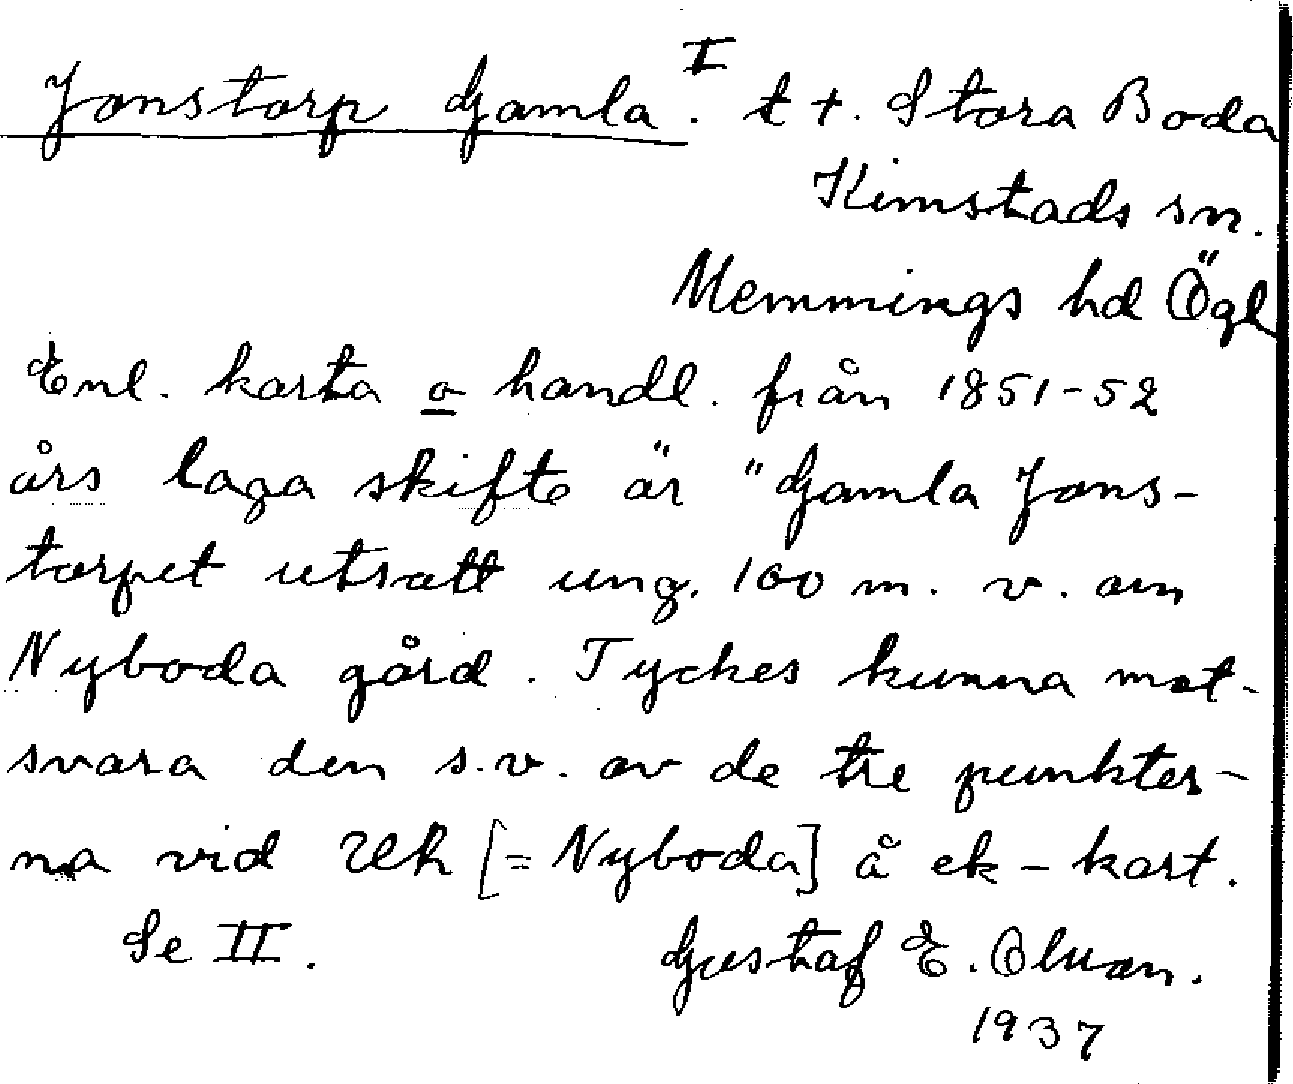 Jonstorp Gamla. I t t. Stora Boda
Kimstads sn.
Memmings hd Ögl
Enl. karta o handl. från 1851-52
års laga skifte är "Gamla Jons-
torpet utsatt ung. 100 m. v. om
Nyboda gård. Tyckes kunna mot-
svara den s.v. av de tre punkter-
na vid Uh [= Nyboda] å ek-kart.
Se II. Gustaf E. Olsson.
1937